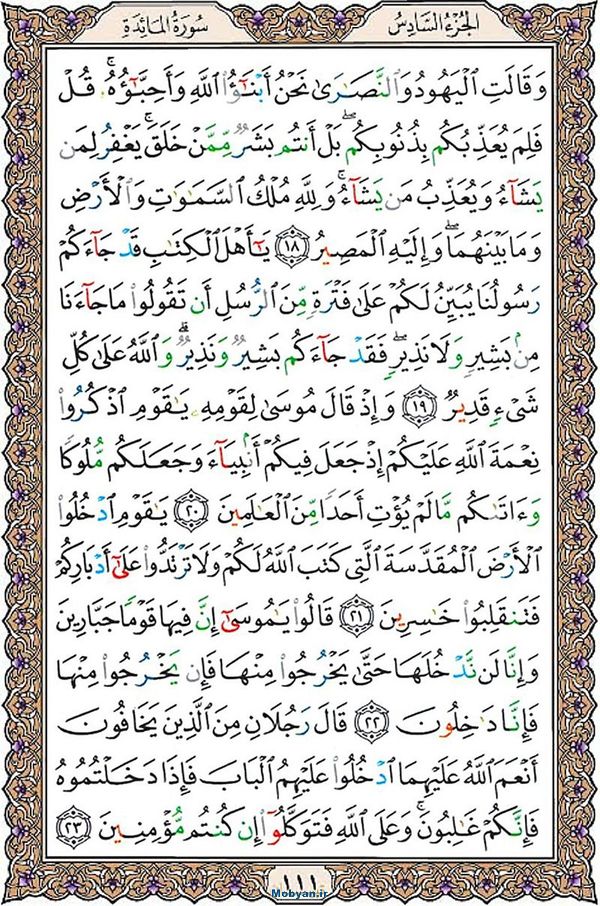 الجُزءُ السَّادِسُ
سُورَةُ المَائِدَةِ
وَقَالَتِ الْيَهُودُ وَالنَّصَارَىٰ نَحْنُ أَبْنَاءُ اللَّهِ وَأَحِبَّاؤُهُ ۚ قُلْ
فَلِمَ يُعَذِّبُكُم بِذُنُوبِكُم ۖ بَلْ أَنتُم بَشَرٌ مِّمَّنْ خَلَقَ ۚ يَغْفِرُ لِمَن
يَشَاءُ وَيُعَذِّبُ مَن يَشَاءُ ۚ وَلِلَّهِ مُلْكُ السَّمَاوَاتِ وَالْأَرْضِ
وَمَا بَيْنَهُمَا ۖ وَإِلَيْهِ الْمَصِيرُ ١٨ يَا أَهْلَ الْكِتَابِ قَدْ جَاءَكُمْ
رَسُولُنَا يُبَيِّنُ لَكُمْ عَلَىٰ فَتْرَةٍ مِّنَ الرُّسُلِ أَن تَقُولُوا مَا جَاءَنَا
مِن بَشِيرٍ وَلَا نَذِيرٍ ۖ فَقَدْ جَاءَكُم بَشِيرٌ وَنَذِيرٌ ۗ وَاللَّهُ عَلَىٰ كُلِّ
شَيْءٍ قَدِيرٌ ١٩ وَإِذْ قَالَ مُوسَىٰ لِقَوْمِهِ يَا قَوْمِ اذْكُرُوا
نِعْمَةَ اللَّهِ عَلَيْكُمْ إِذْ جَعَلَ فِيكُمْ أَنبِيَاءَ وَجَعَلَكُم مُّلُوكًا
وَءَاتَاكُم مَّا لَمْ يُؤْتِ أَحَدًا مِّنَ الْعَالَمِينَ ٢٠ يَا قَوْمِ ادْخُلُوا
الْأَرْضَ الْمُقَدَّسَةَ الَّتِي كَتَبَ اللَّهُ لَكُمْ وَلَا تَرْتَدُّوا عَلَىٰ أَدْبَارِكُمْ
فَتَنقَلِبُوا خَاسِرِينَ ٢١ قَالُوا يَا مُوسَىٰ إِنَّ فِيهَا قَوْمًا جَبَّارِينَ
وَإِنَّا لَن نَّدْخُلَهَا حَتَّىٰ يَخْرُجُوا مِنْهَا فَإِن يَخْرُجُوا مِنْهَا
فَإِنَّا دَاخِلُونَ ٢٢ قَالَ رَجُلَانِ مِنَ الَّذِينَ يَخَافُونَ
أَنْعَمَ اللَّهُ عَلَيْهِمَا ادْخُلُوا عَلَيْهِمُ الْبَابَ فَإِذَا دَخَلْتُمُوهُ
فَإِنَّكُمْ غَالِبُونَ ۚ وَعَلَى اللَّهِ فَتَوَكَّلُوا إِن كُنتُم مُّؤْمِنِينَ ٢٣
١١١
Mobyan.ir